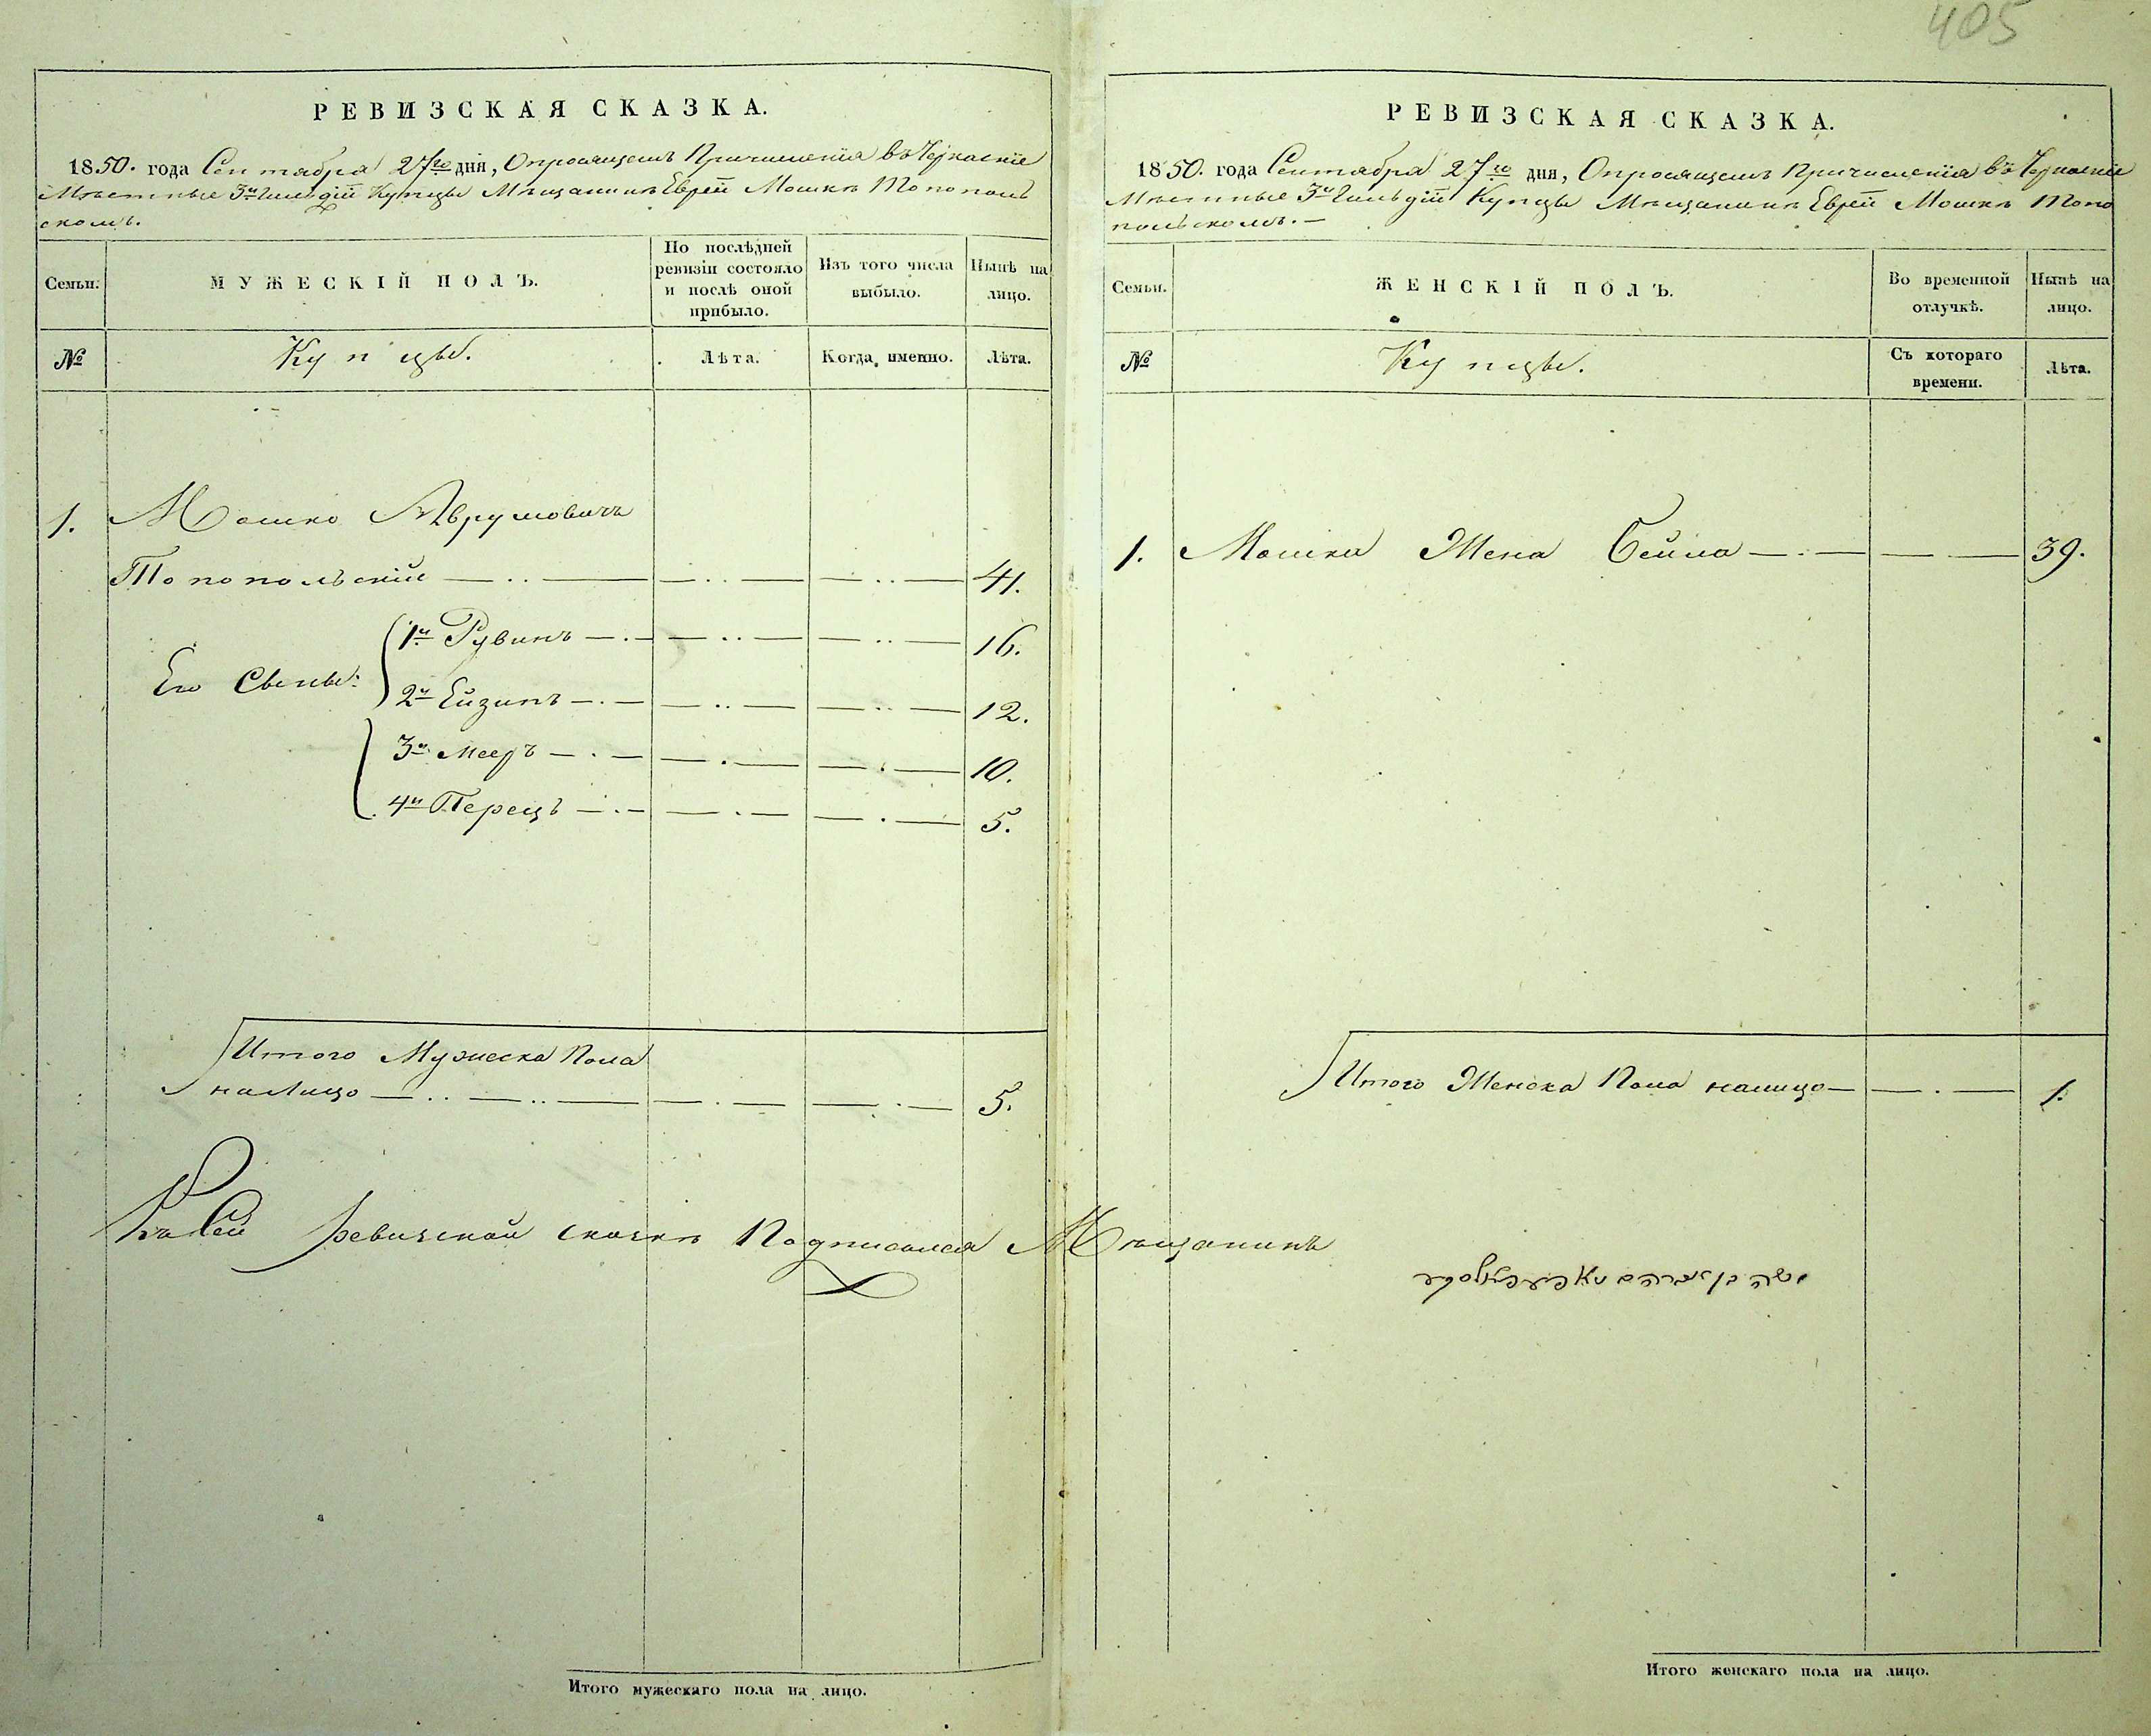 405
РЕВИЗСКАЯ СКАЗКА.
1850. года Сентября 27го дня, О просящемъ Причисленія въ Черкаскіе
Мѣстные 3й Гильдіи Купцы Мѣщанинѣ Еврей Мошкѣ Топополь
скомъ.
Семьи.
МУЖЕСКІЙ ПОЛЪ.
По послѣдней ревизіи состояло и послѣ оной прибыло.
Изъ того числа выбыло.
Нынѣ на лицо.
№
Купцы.
Лѣта.
Когда именно.
Лѣта.
1. Мошко Аврумовичъ
Топопольскій 41.
Его Сыны:
1й Рувинъ 16.
2й Ейзипъ 12.
3й Мееръ 10.
4й Перецъ 5.
Итого Мужеска Пола
налицо 5.
Къ Сей ревизской сказкѣ Подписался Мѣщанинъ
Итого мужескаго пола на лицо.
РЕВИЗСКАЯ СКАЗКА.
1850. года Сентября 27го дня, О просящемъ Причисленія въ Черкаскіе
Мѣстные 3й Гильдіи Купцы Мѣщанинѣ Еврей Мошкѣ Топо
польскомъ.
Семьи.
ЖЕНСКІЙ ПОЛЪ.
Во временной отлучкѣ.
Нынѣ на лицо.
№
Купцы.
Съ котораго времени.
Лѣта.
1. Мошки Жена Бейла 39.
Итого Женска Пола налицо 1.
משה בן אברהם
Итого женскаго пола на лицо.